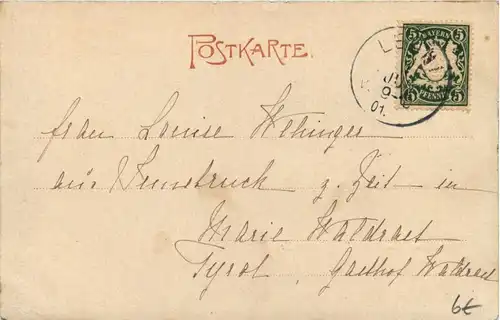 POSTKARTE.
5 BAYERN 5
5 PFENNIG 5
01.
Frau Louise Wehinger
aus Innsbruck z. Zeit in
Marie Waldrast
Tyrol, Gasthof Waldrast
6€